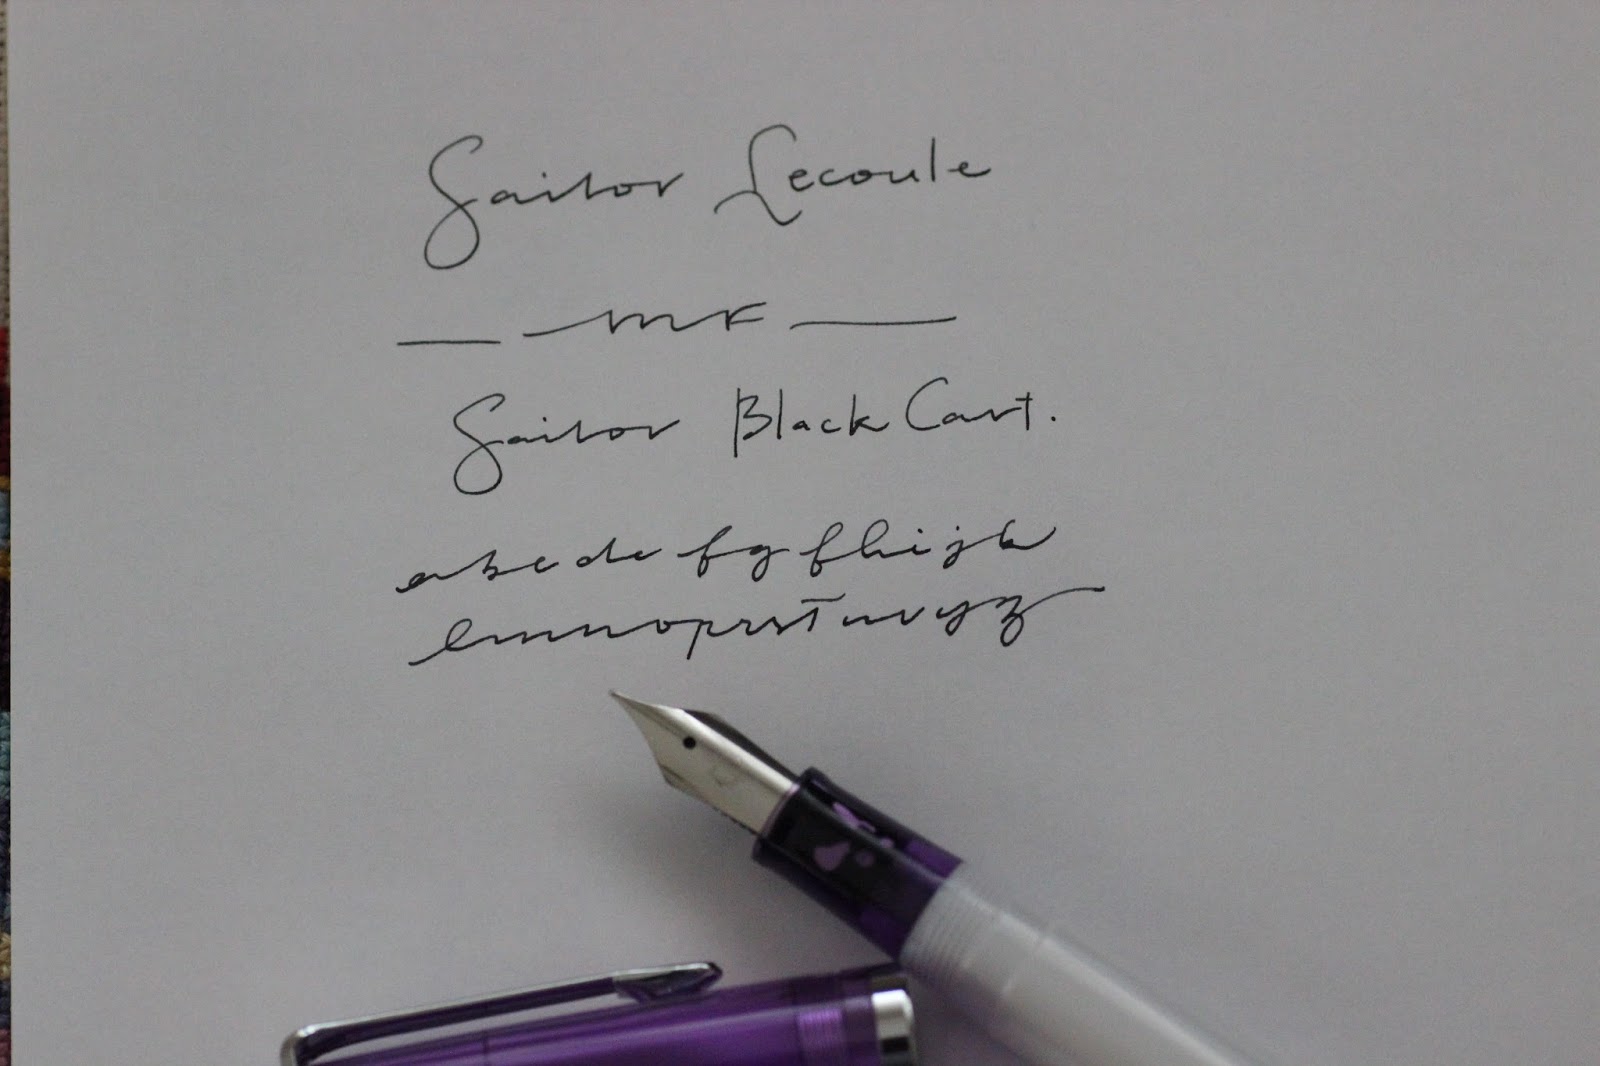 Sailor Lecoule
— MF —
Sailor Black Cart.
abcdefghijk
lmnopqrstuvyz